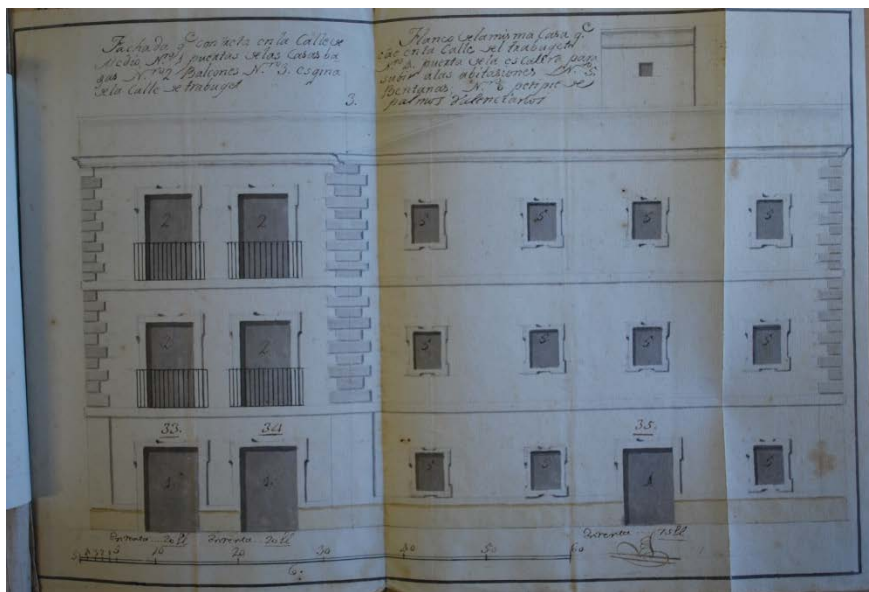 Fachada q.e constacta en la Calle de
Medio N.ro 1 puertas de las Casas ba
gas N.ro 2 Balcones N.ro 3. esgina
de la Calle de trabuget
3.
Flanco de la misma Casa q.e
cae en la Calle del trabuget
N.ro puerta de la escalera para
subir a las abitasiones N. 5.
Bentanas. N. 6 petipie de
palmos Valencianos
2 2 5 5 5 5
2 2 5 5 5 5
33. 34 35.
1 1 5 5 1 5
Dirrenta 20 ll Dirrenta 20 ll Dirrenta 25 ll
5 10 20 30 40 50 60
6.